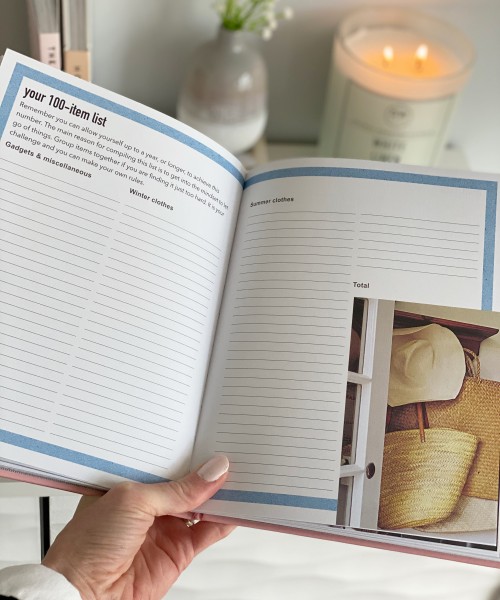 your 100-item list
Remember you can allow yourself up to a year, or longer, to achieve this
number. The main reason for compiling this list is to get into the mindset to let
go of things. Group items together if you are finding it just too hard. It is your
challenge and you can make your own rules.
Gadgets & miscellaneous
Winter clothes
Summer clothes
Total